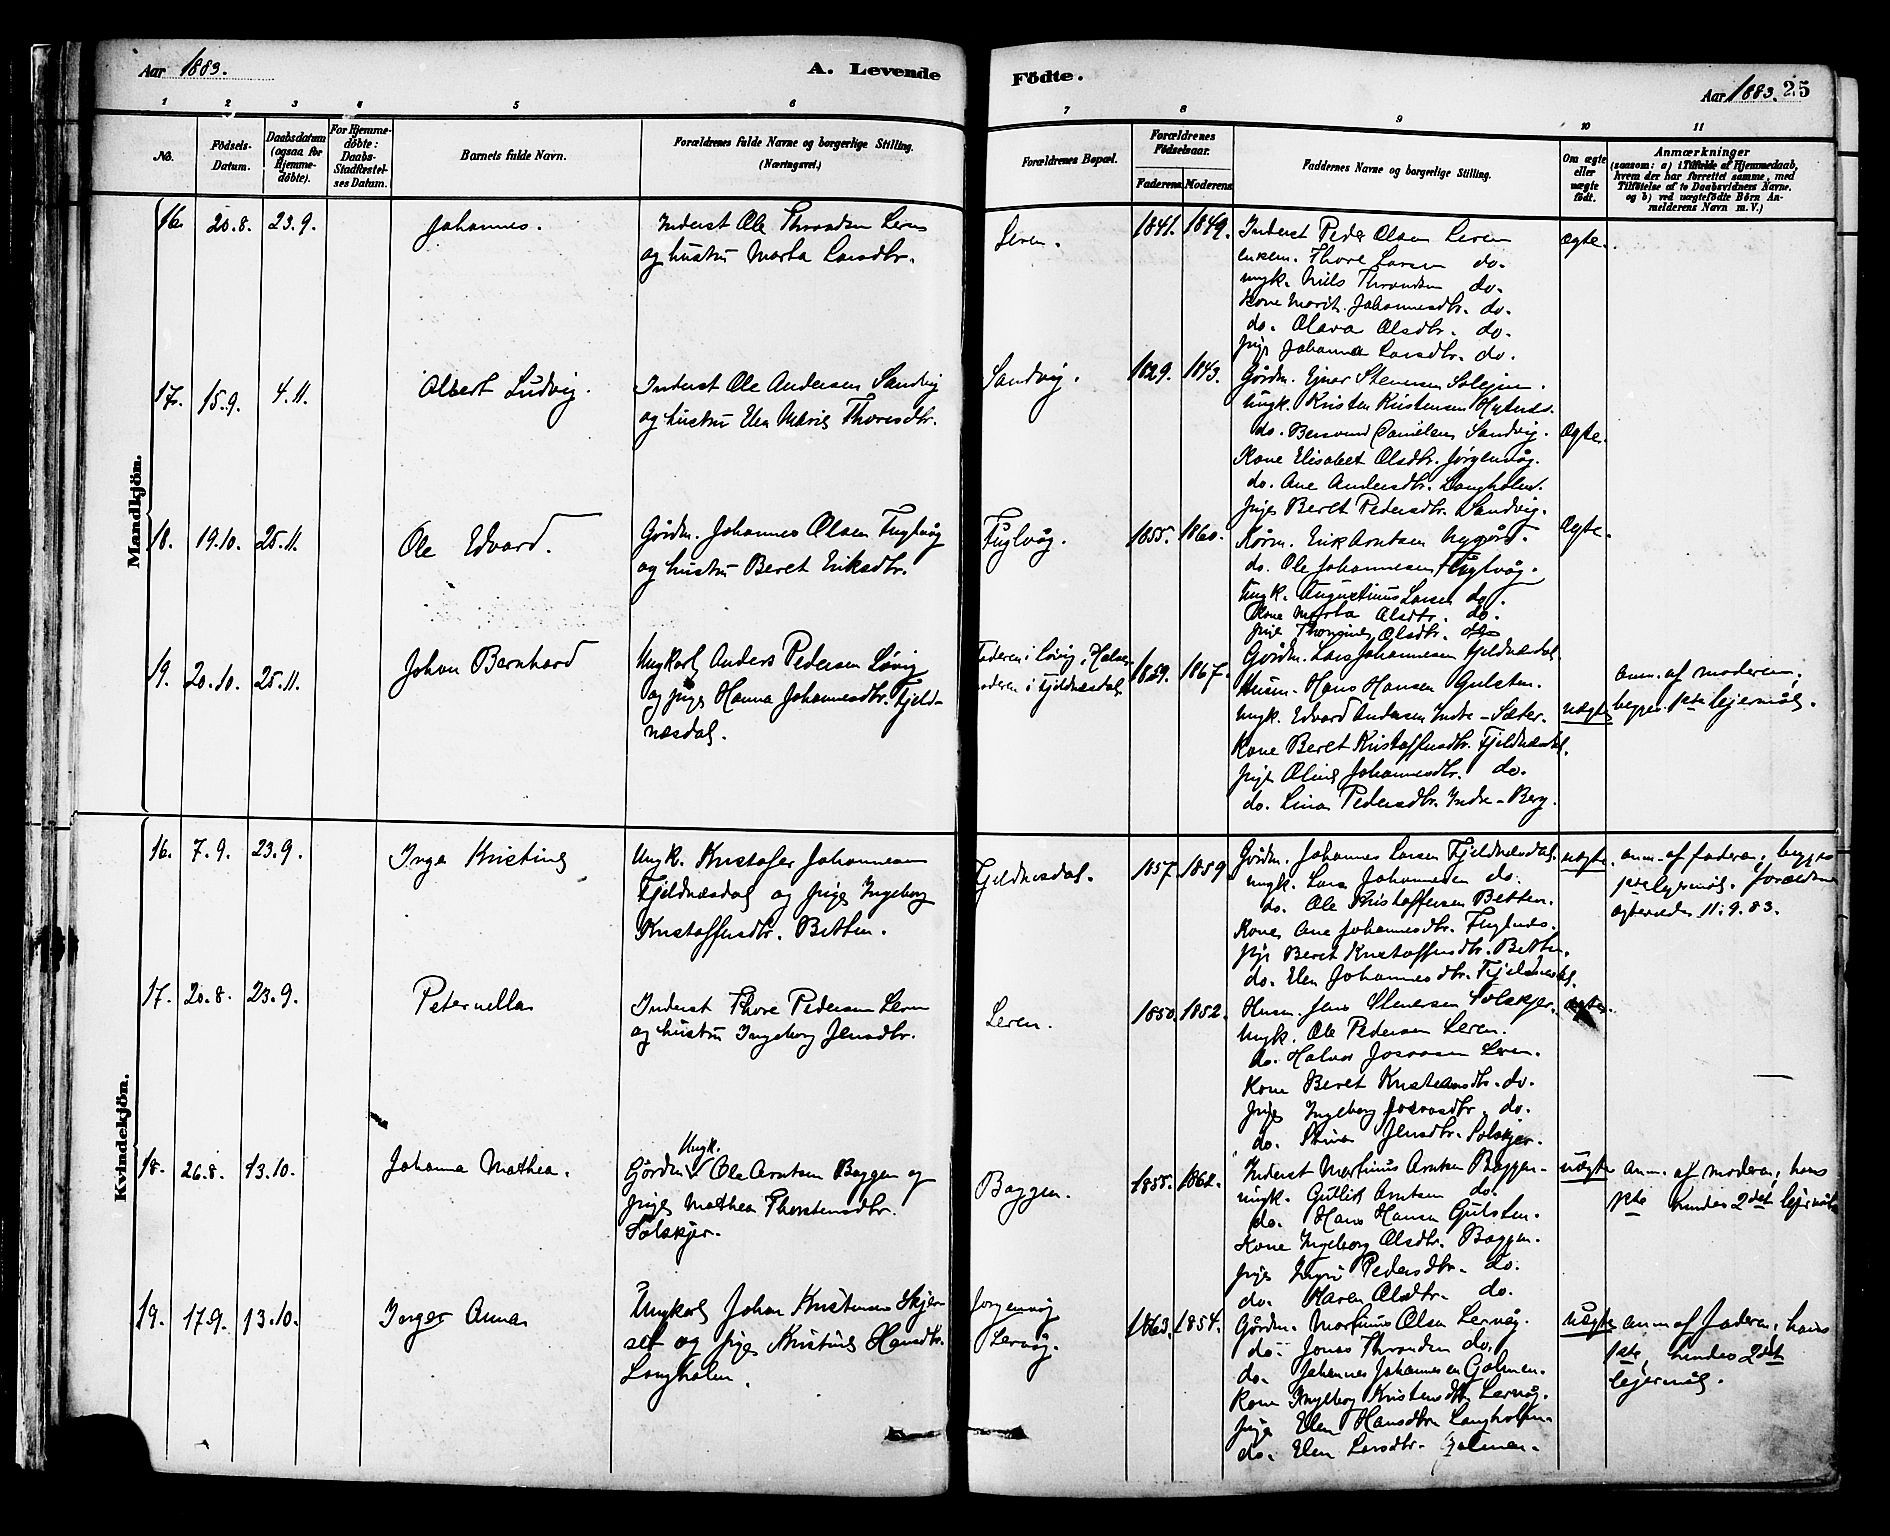 Aar 1883.
A. Levende
Födte.
Aar 1883. 25
1 2 3 4 5 6 7 8 9 10 11
No.
Födsels-Datum.
Daabsdatum (ogsaa for Hjemme-döbte).
For Hjemme-döbte: Daabs-Stadfæstel-ses Datum.
Barnets fulde Navn.
Forældrenes fulde Navne og borgerlige Stilling. (Næringsvei.)
Forældrenes Bopæl.
Forældrenes Födselsaar.
Faderens. Moderens.
Faddernes Navne og borgerlige Stilling.
Om ægte eller uægte født.
Anmærkninger
(saasom: a) i Tilfælde af Hjemmedaab,
hvem der har forrettet samme, med
Tilföielse af to Daabsvidners Navne.
og b) ved uægtefödte Börn An-
melderens Navn m. V.)
Mandkjön.
16. 20.8. 23.9. Johannes.
Inderst Ole Throndsen Leren
og hustru Marta Larsdtr.
Leren. 1841. 1849.
Inderst Peder Olsen Leren
enkem. Thore Larsen do.
ungk. Nils Throndsen do.
Kone Marit Johannesdtr. do.
do. Olava Olsdtr. do.
pige Johanna Larsdtr. do.
ægte.
17. 15.9. 4.11. Albert Ludvig.
Inderst Ole Andersen Sandvig
og hustru Elen Marie Thoresdtr.
Sandvig. 1829. 1843.
Gårdm. Ejnar Stenersen
Ungk. Kristen Kristensen
do. Danielsen Sandvig.
Kone Elisabet Olsdtr. Jørgenvåg.
do. Ane Andersdtr. Langholen.
pige Beret Pedersdtr. Sandvig.
ægte.
18. 19.10. 25.11. Ole Edvard.
Gårdm. Johannes Olsen Fuglvåg
og hustru Beret Eriksdtr.
Fuglvåg. 1855. 1860.
Erik Arntsen
do. Ole Johannesen Fuglvåg.
Ungk. Augustinus Larsen do.
Kone Marta Olsdtr. do.
pige Olsdtr. do
ægte.
19. 20.10. 25.11. Johan Bernhard
Ungkarl Anders Pedersen Løvig
og pige Hanna Johannesdtr. Fjeld-
næsdal.
Faderen i Løvig, Halse
moderen i Fjeldnæsdal
1859. 1867.
Gårdm. Lars Johannesen Fjeldnæsdal.
Husm. Hans Hansen Gulsten.
Ungk. Edvard Andersen Indre-Sæter.
Kone Beret Kristoffersdtr. Fjeldnæsdal.
pige Oline Johannesdtr. do.
do. Lina Pedersdtr. Indre-Berg.
uægte
anm. af moderen;
begges 1ste lejermål.
Kvindekjön.
16. 7.9. 23.9. Inga Kristine
Ungk. Kristofer Johannesen
Fjeldnæsdal og pige Ingeborg
Kristoffersdtr. Betten.
Fjeldnesdal. 1857. 1859
Gårdm. Johannes Larsen Fjeldnæsdal.
ungk. Lars Johannesen do.
do. Ole Kristoffersen Betten.
Kone Ane Johannesdtr. Fuglnes.
pige Beret Kristoffersdtr. Betten.
do. Elen Johannesdtr. Fjeldnæsdal.
uægte.
anm. af faderen; begges
1ste lejermål. forældrene
ægteviedes 11.9.83.
17. 20.8. 23.9. Peternella
Inderst Thore Pedersen Leren
og hustru Ingeborg Jensdtr.
Leren. 1850. 1852.
Husm. Jens Stenersen Solskjer.
Ungk. Ole Pedersen Leren.
do. Halvor Leren.
Kone Beret Kristensdtr. do.
pige Ingeborg do.
do. Jensdtr. Solskjer.
ægte.
18. 26.8. 13.10. Johanna Mathea.
Ungk.
Gårdm. Ole Arntsen Baggen og
pige Mathea Thorstensdtr.
Solskjer.
Baggen. 1855. 1862.
Inderst Martinus Arntsen Baggen.
ungk. Gutlik Arntsen do.
do. Hans Hansen Gulsten.
Kone Ingeborg Olsdtr. Baggen.
pige Pedersdtr. do.
do. Maren Olsdtr. do.
uægte
anm. af moderen; hans
1ste hendes 2det lejermål
19. 17.9. 13.10. Inger Anna
Ungkarl Johan Kristensen Skjer-
set og pige Kristine Hansdtr.
Langholen.
Jørgenvåg
Lervåg.
1863. 1854.
Gårdm. Martinus Olsen Lervåg.
do. Jonas Throndsen do.
do. Johannes Johannesen Golmen.
Kone Ingeborg Kristensdtr. Lervåg.
pige Elen Hansdtr. Langholen.
do. Elen Larsdtr. Golmen.
uægte
anm. af faderen; hans
1ste, hendes 2det
lejermål.